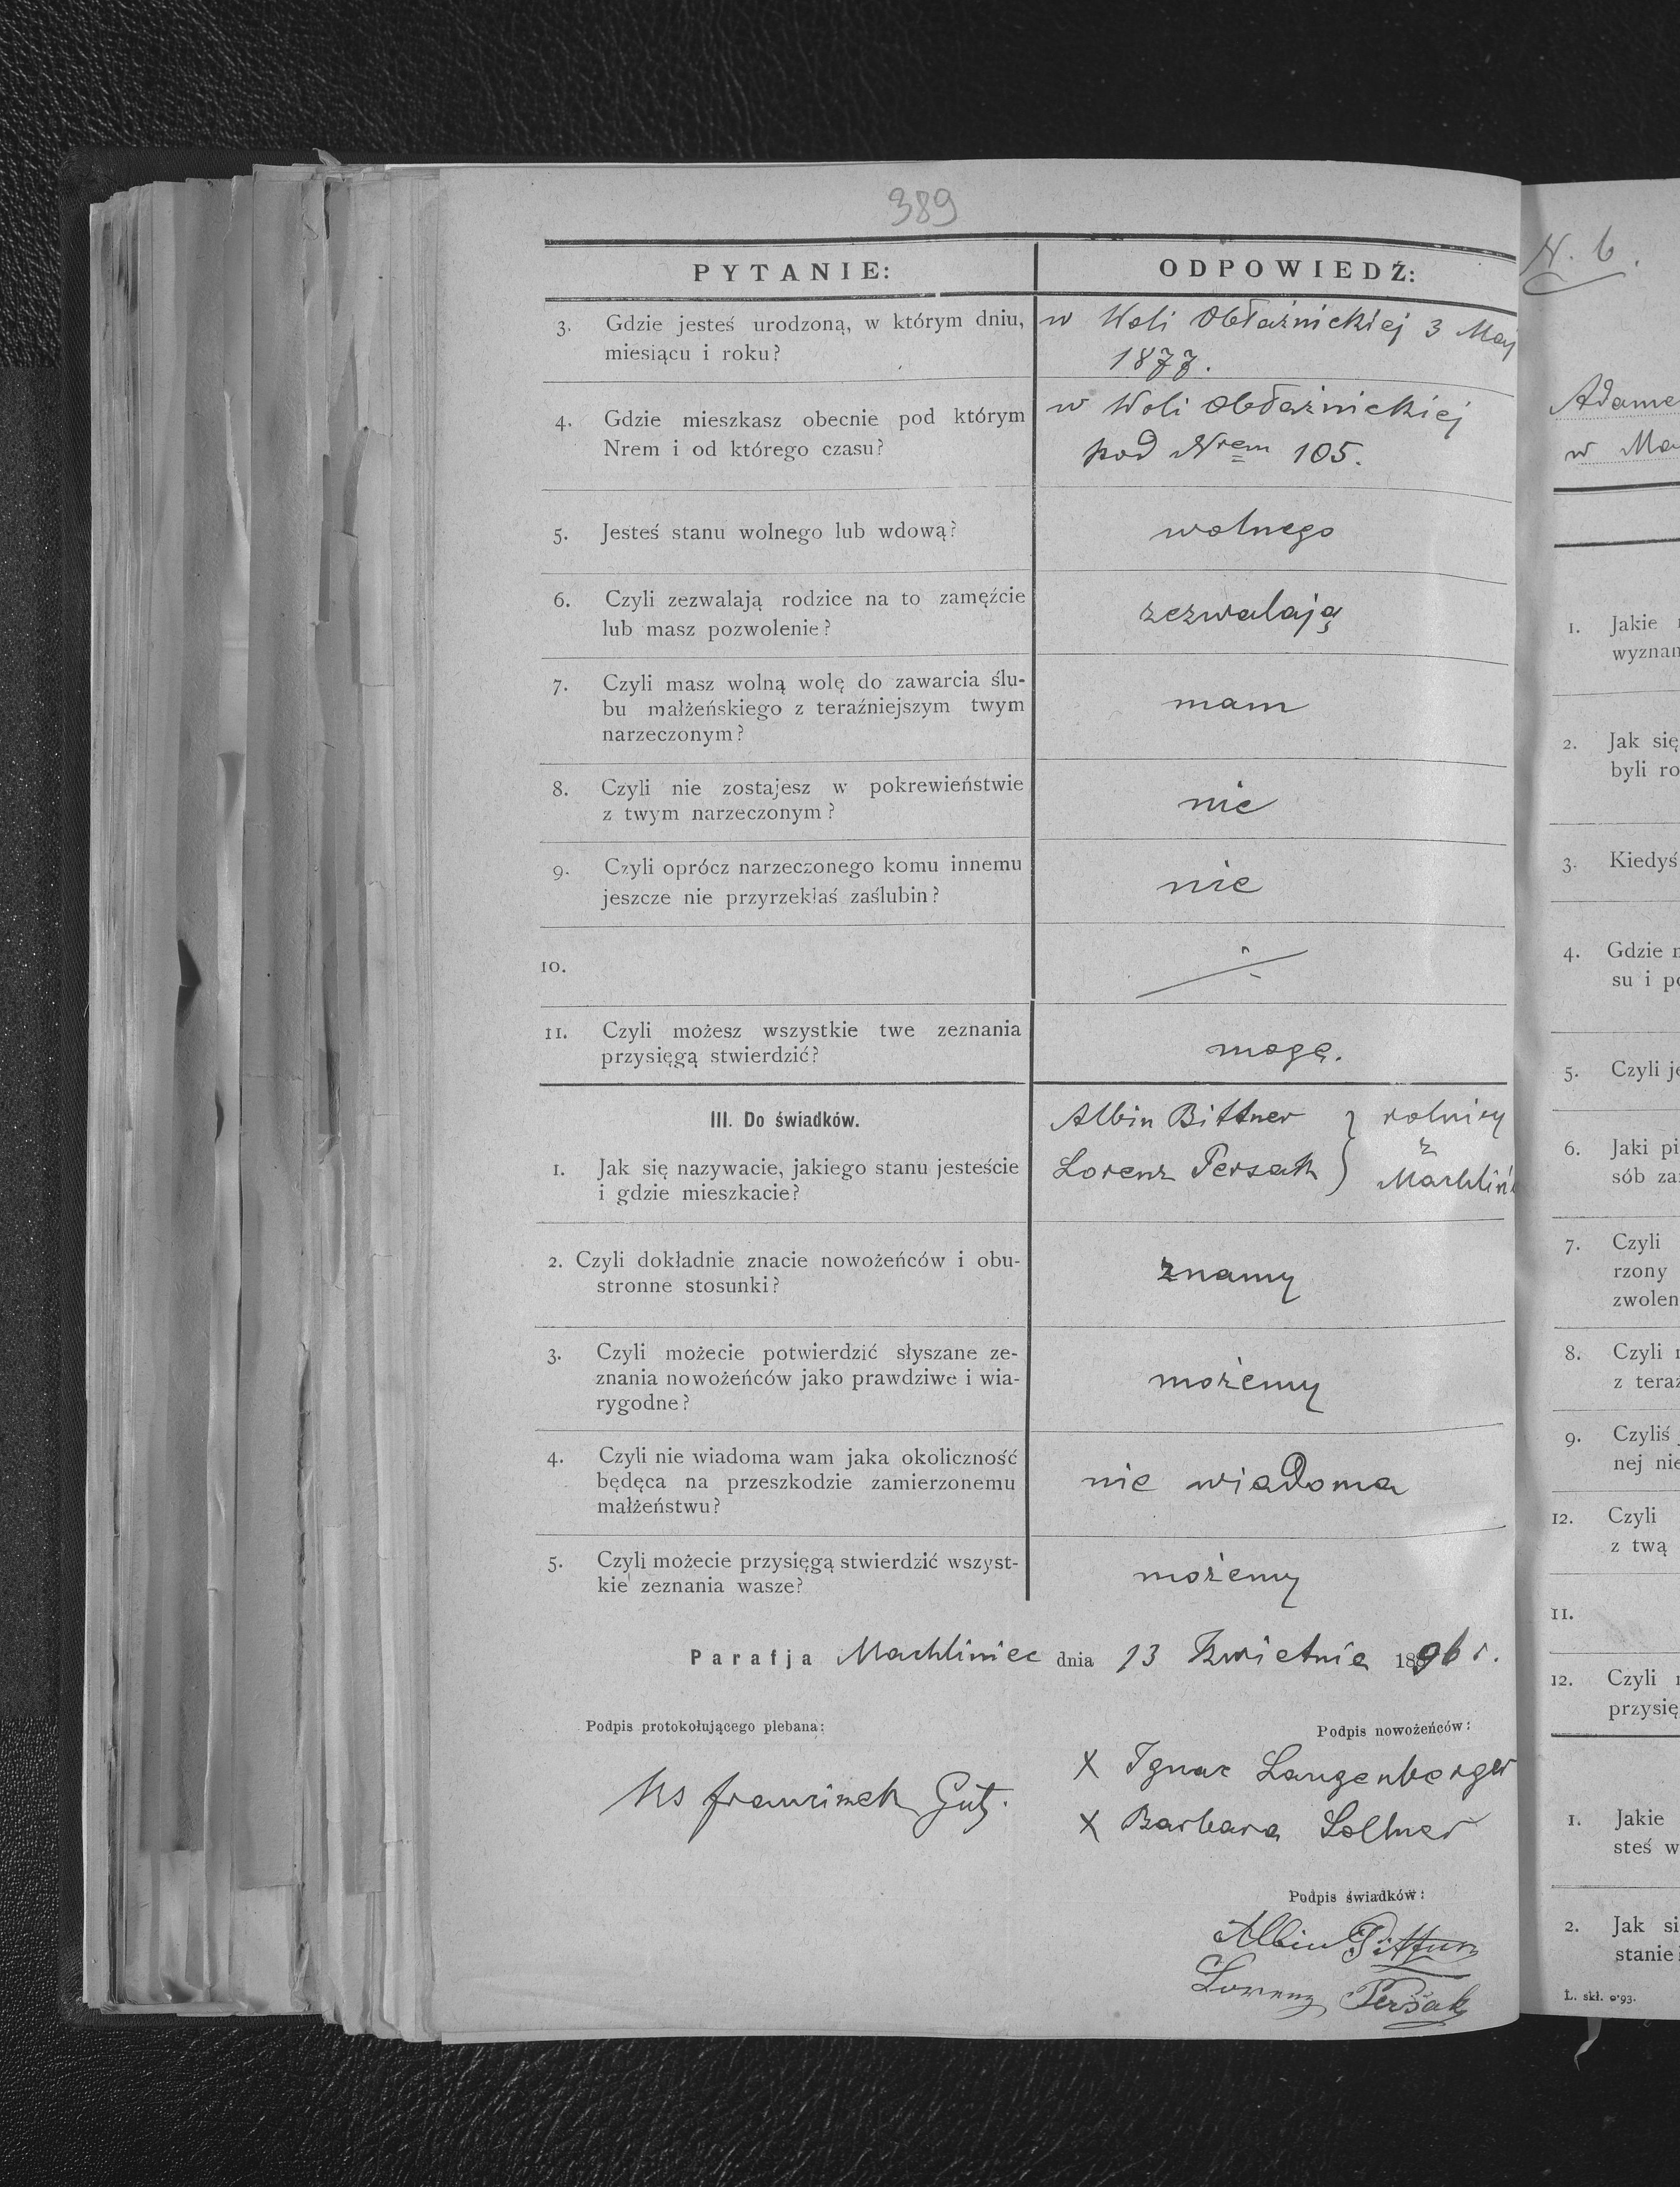 389
PYTANIE: ODPOWIEDŹ:
3. Gdzie jesteś urodzoną, w którym dniu, w Woli Obłaźnickiej 3 Maj
miesiącu i roku? 1877.
4. Gdzie mieszkasz obecnie pod którym w Woli Obłaźnickiej
Nrem i od którego czasu? pod Nrem 105.
5. Jesteś stanu wolnego lub wdową? wolnego
6. Czyli zezwalają rodzice na to zamęźcie zezwalają
lub masz pozwolenie?
7. Czyli masz wolną wolę do zawarcia ślu-
bu małżeńskiego z teraźniejszym twym mam
narzeczonym?
8. Czyli nie zostajesz w pokrewieństwie nie
z twym narzeczonym?
9. Czyli oprócz narzeczonego komu innemu nie
jeszcze nie przyrzekłaś zaślubin?
10.
11. Czyli możesz wszystkie twe zeznania mogę.
przysięgą stwierdzić?
III. Do świadków. Albin Bittner } rolnicy
1. Jak się nazywacie, jakiego stanu jesteście Lorenz Persak } z
i gdzie mieszkacie? Machliń
2. Czyli dokładnie znacie nowożeńców i obu- znamy
stronne stosunki?
3. Czyli możecie potwierdzić słyszane ze-
znania nowożeńców jako prawdziwe i wia- możemy
rygodne?
4. Czyli nie wiadoma wam jaka okoliczność
będęca na przeszkodzie zamierzonemu nie wiadoma
małżeństwu?
5. Czyli możecie przysięgą stwierdzić wszyst- możemy
kie zeznania wasze?
Parafja Machliniec dnia 13 Kwietnia 1896 r.
Podpis protokołującego plebana: Podpis nowożeńców:
X Ignac Langenberger
Ks Franciszek
X Barbara Loltner
Podpis świadków:
Albin Bittner
Lorenz Persak
N. 6.
Adame
w Ma
1. Jakie
wyznan
2. Jak się
byli ro
3. Kiedyś
4. Gdzie
su i po
5. Czyli je
6. Jaki pi
sób za
7. Czyli
rzony
zwolen
8. Czyli
z teraź
9. Czyliś
nej nie
12. Czyli
z twą
11.
12. Czyli
przysię
1. Jakie
steś w
2. Jak si
stanie
L. skł. 9·93.